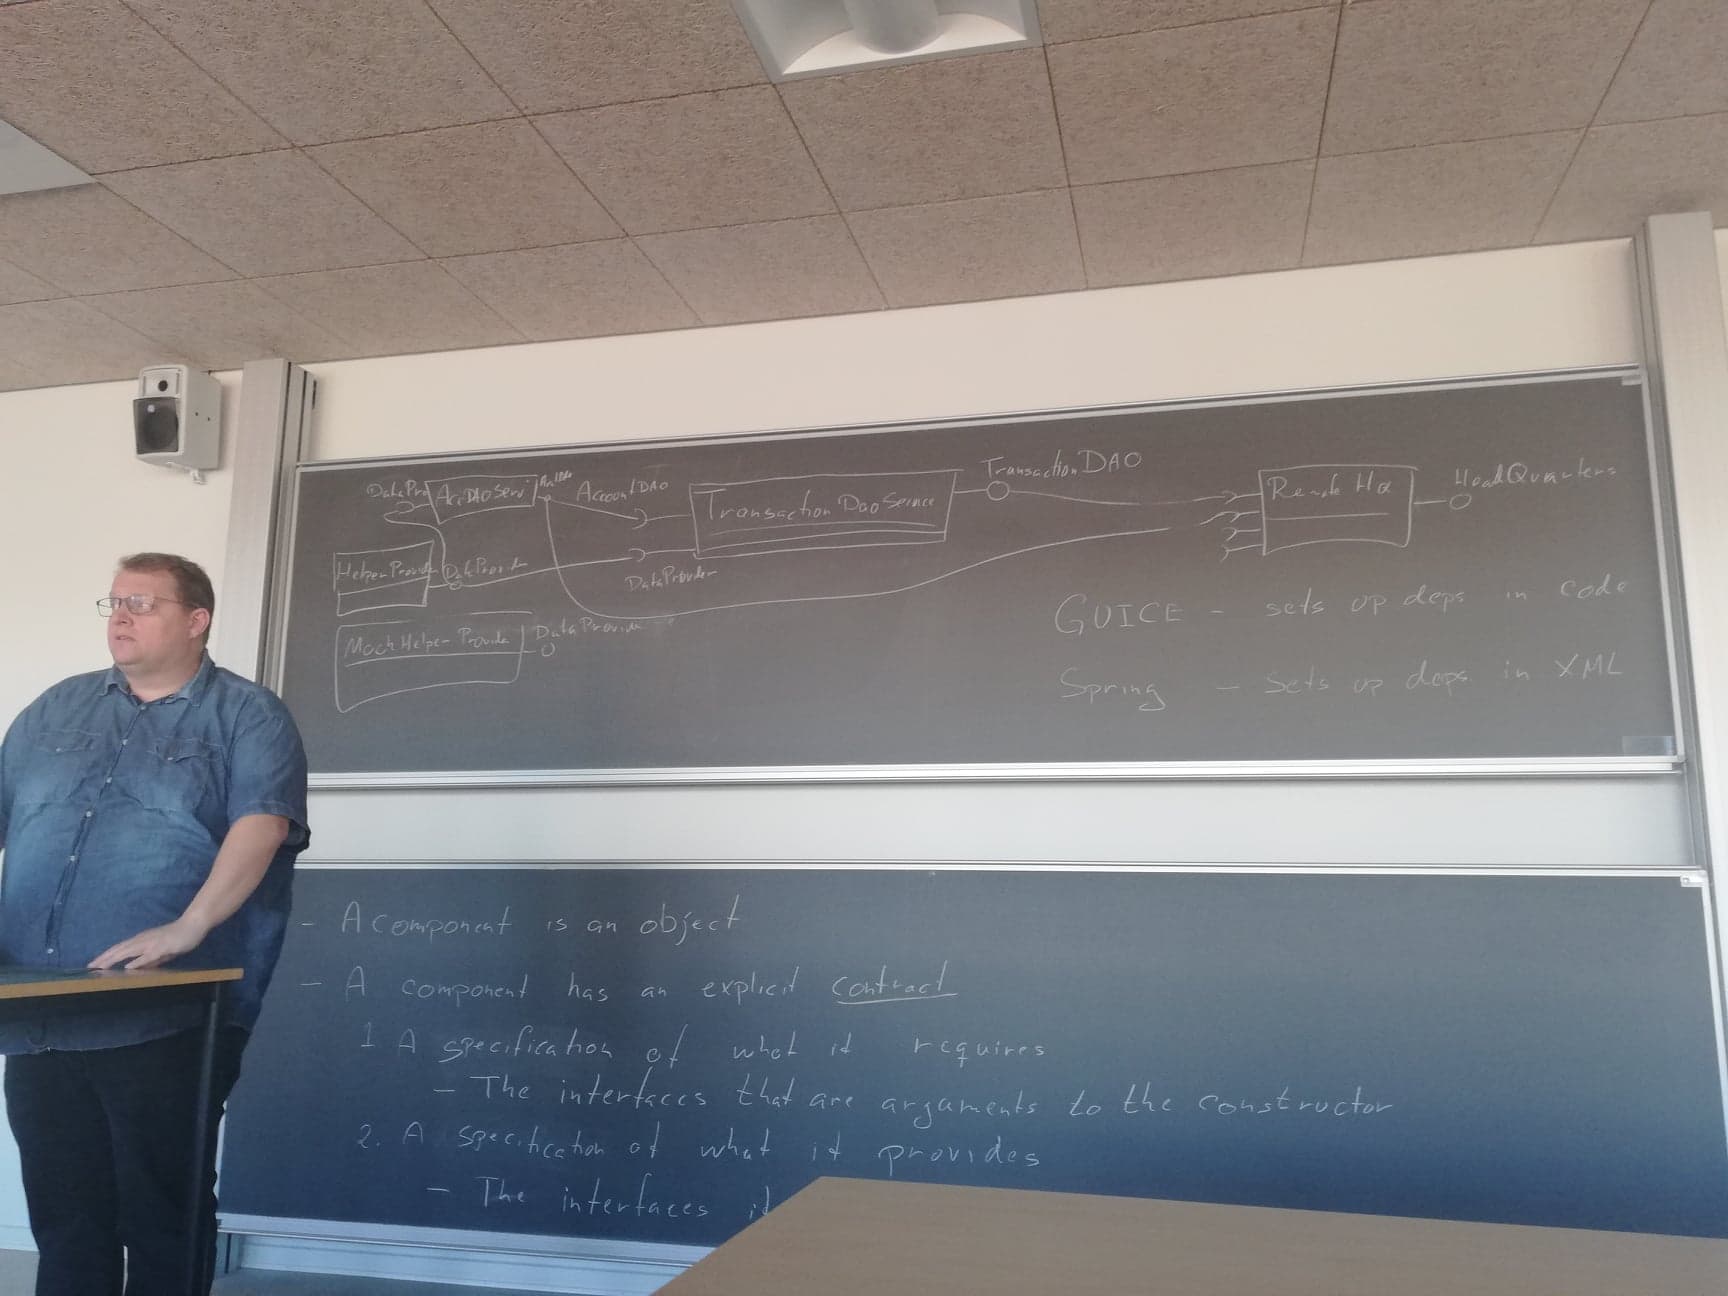 DataPro
AccDAOServi
AccountDAO
TransactionDaoService
TransactionDAO
Remote HQ
HeadQuarters
HelperProvid
DataProvide
DataProvider
MockHelperProvide
DataProvide
GUICE - sets up deps in code
Spring - Sets up deps in XML
- A component is an object
- A component has an explicit contract
1 A specification of what it requires
- The interfaces that are arguments to the constructor
2. A specification of what it provides
- The interfaces it